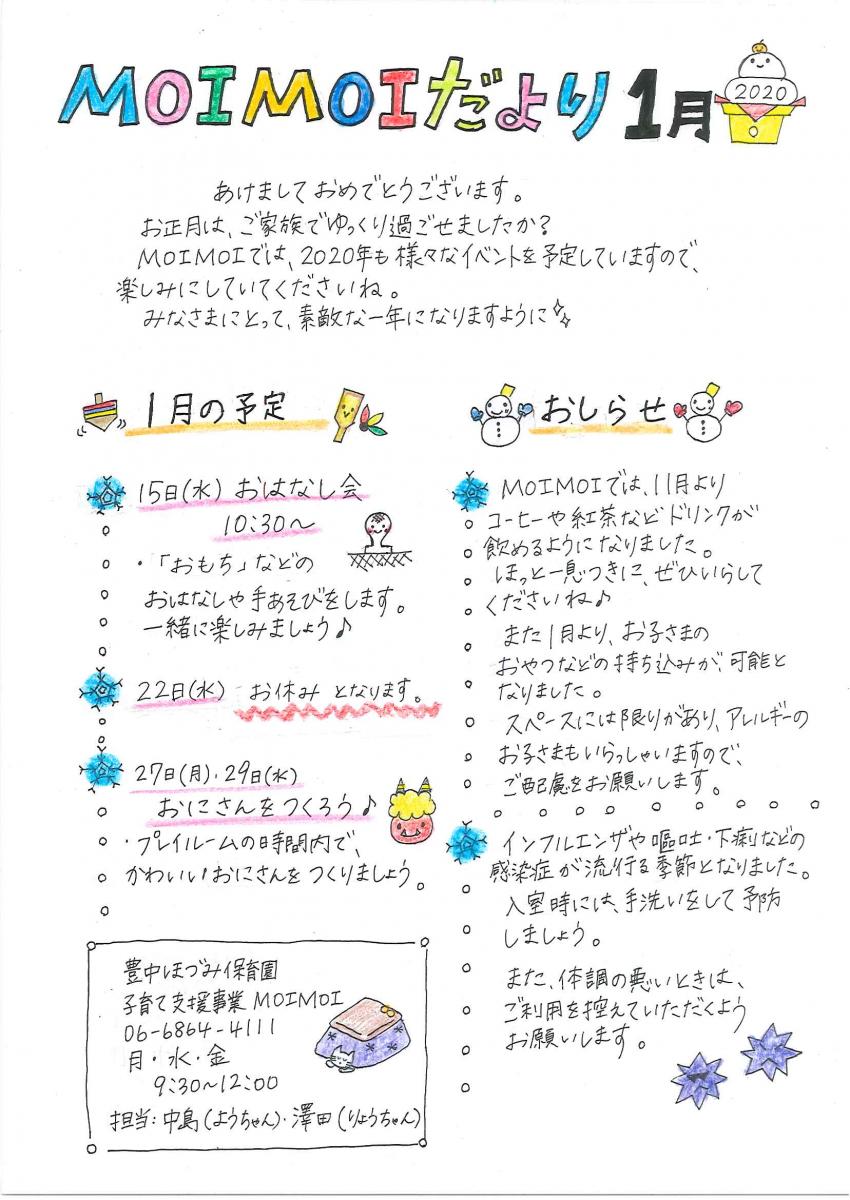 MOIMOIだより 1月
2020
あけましておめでとうございます。
お正月は、ご家族でゆっくり過ごせましたか？
MOIMOIでは、2020年も様々なイベントを予定していますので、
楽しみにしていてくださいね。
みなさまにとって、素敵な一年になりますように
1月の予定
15日(水) おはなし会
10:30～
・「おもち」などの
おはなしや手あそびをします。
一緒に楽しみましょう♪
22日(水) お休みとなります。
27日(月)・29日(水)
おにさんをつくろう♪
・プレイルームの時間内で、
かわいいおにさんをつくりましょう。
豊中ほづみ保育園
子育て支援事業 MOIMOI
06-6864-4111
月・水・金
9:30～12:00
担当：中島(ようちゃん)・澤田(りょうちゃん)
おしらせ
MOIMOIでは、11月より
コーヒーや紅茶などドリンクが
飲めるようになりました。
ほっと一息つきに、ぜひいらして
くださいね♪
また1月より、お子さまの
おやつなどの持ち込みが、可能と
なりました。
スペースには限りがあり、アレルギーの
お子さまもいらっしゃいますので、
ご配慮をお願いします。
インフルエンザや嘔吐・下痢などの
感染症が流行る季節となりました。
入室時には、手洗いをして予防
しましょう。
また、体調の悪いときは、
ご利用を控えていただくよう
お願いします。